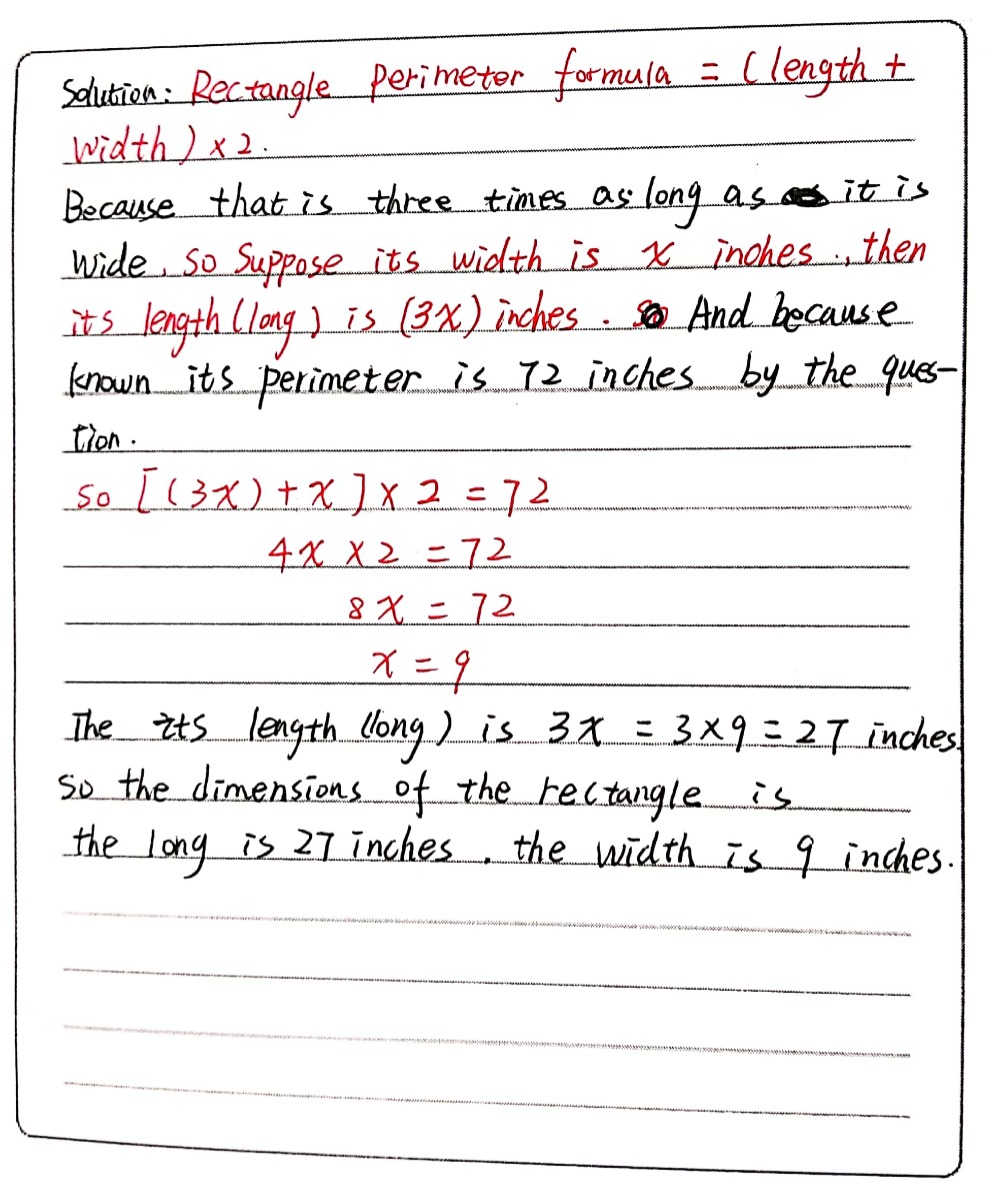 Solution: Rectangle perimeter formula = (length +
width) × 2.
Because that is three times as long as it is
wide, so suppose its width is x inches., then
its length (long) is (3x) inches. And because
known its perimeter is 72 inches by the ques-
tion.
so [(3x) + x] × 2 = 72
4x × 2 = 72
8x = 72
x = 9
The its length (long) is 3x = 3×9 = 27 inches.
so the dimensions of the rectangle is
the long is 27 inches, the width is 9 inches.